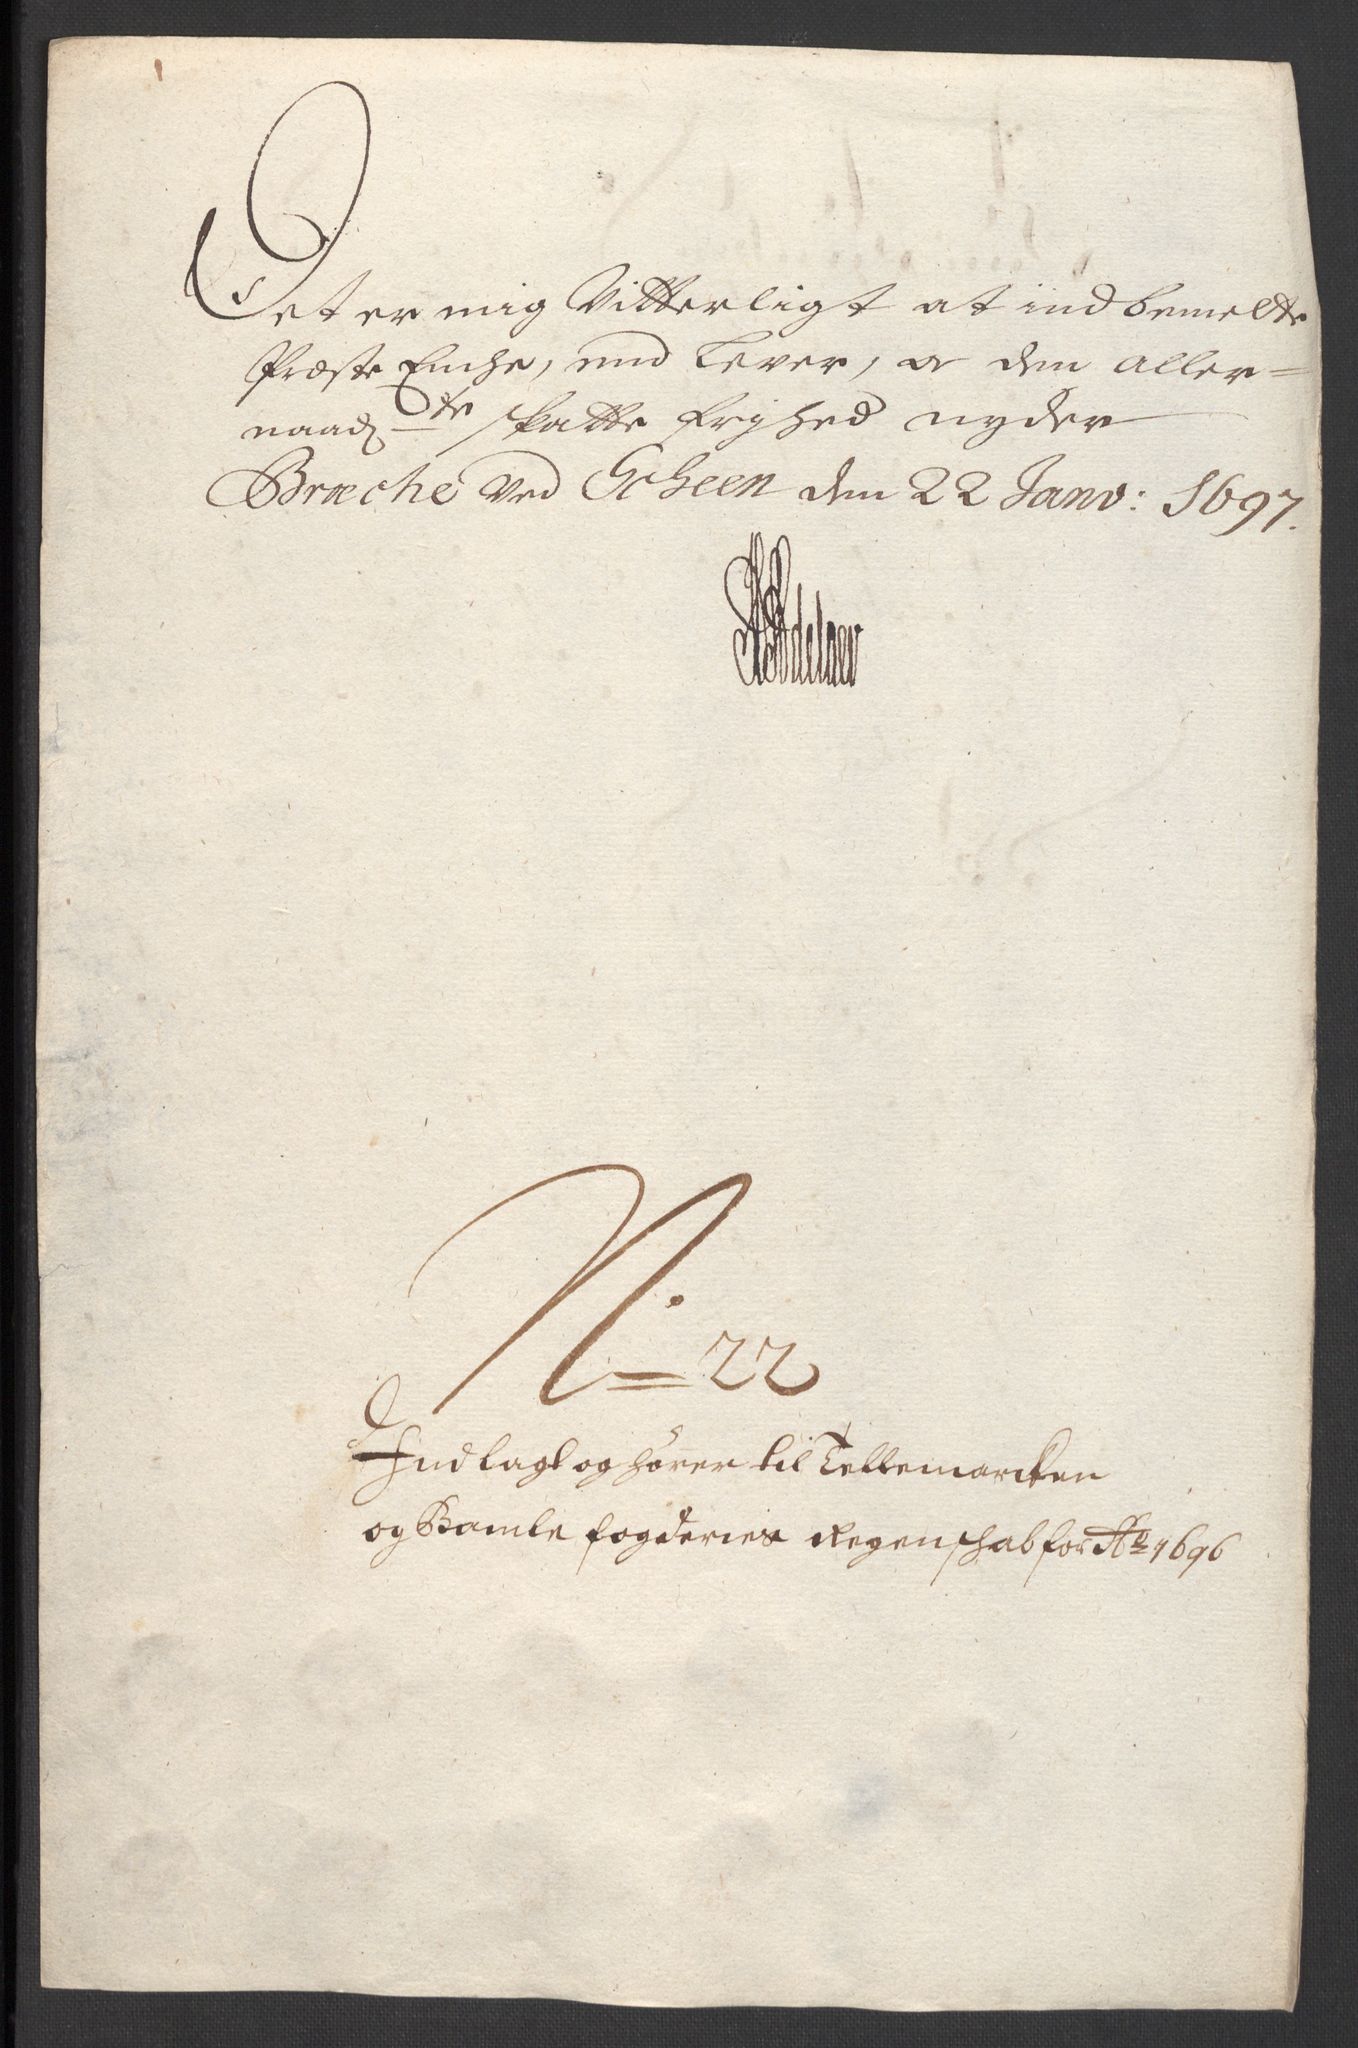 Det er mig Vitterligt at indbemelte
Præste Enche, end lever, og den aller=
naadste skatte frihed nyder
Bræche ved Scheen den 22 Janv: 1697.
Adelaer
No 22
Indlagt og hører til Tellemarcken
og Bamle fogderies Regenschab for Ao 1696